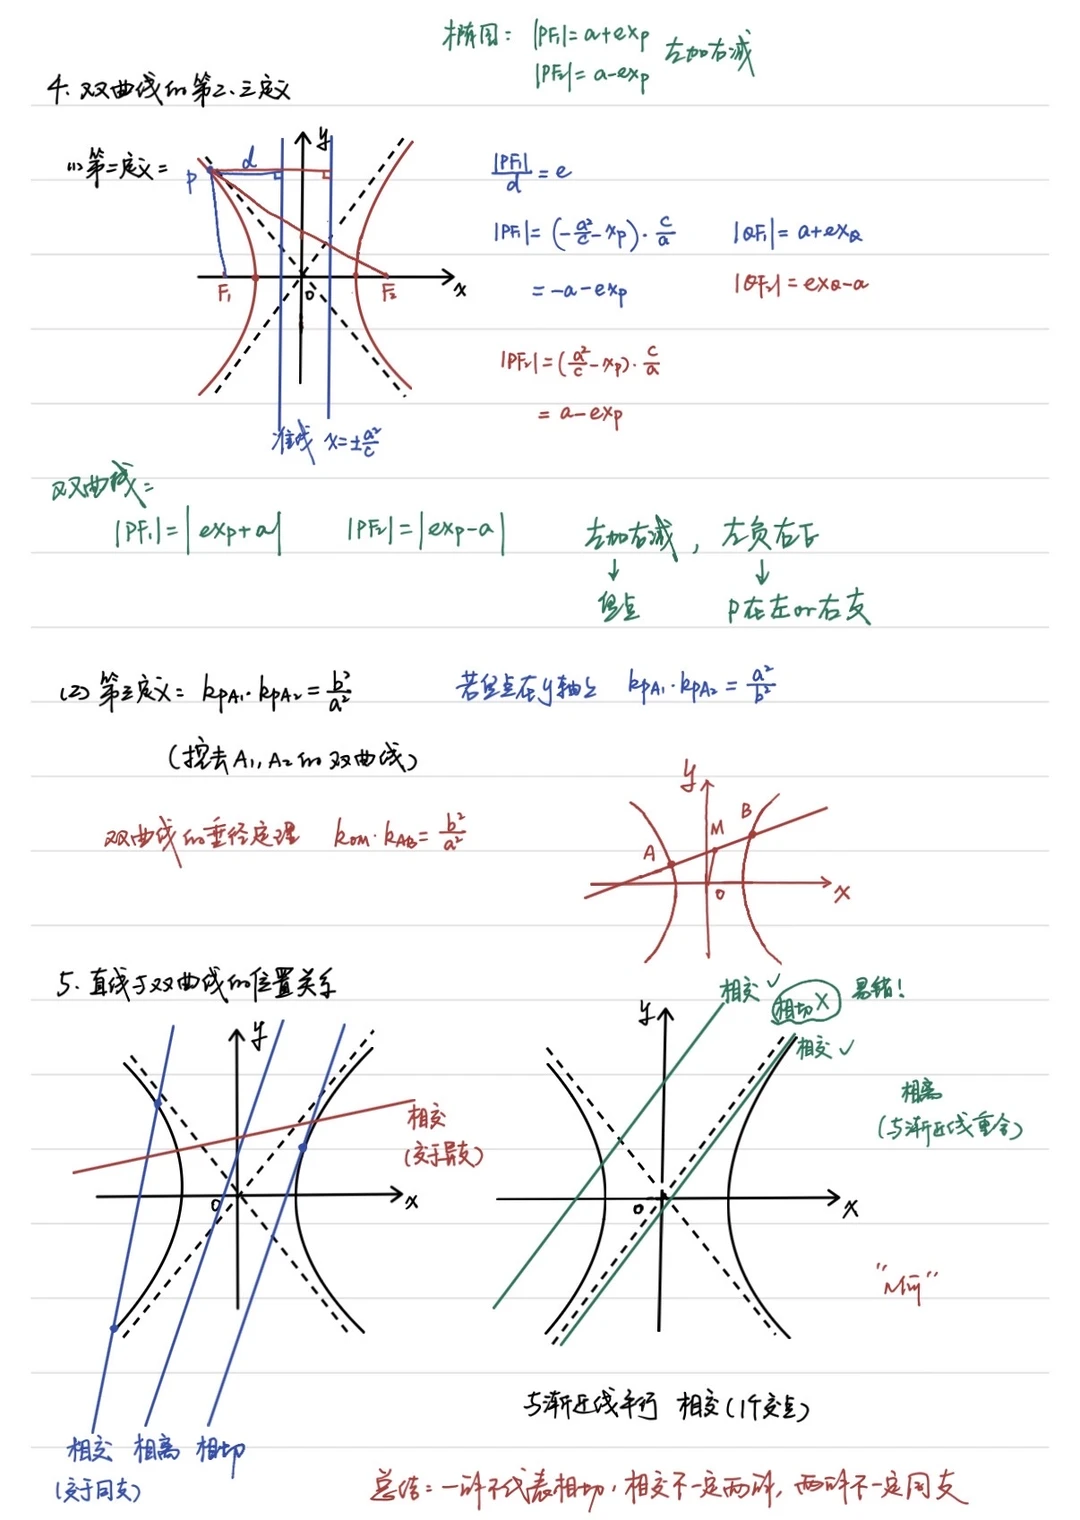 椭圆: |PF₁|=a+exₚ
|PF₂|=a-exₚ 左加右减
4. 双曲线的第二、三定义
(1) 第二定义:
y
d
P
F₁ O F₂ x
准线 x=±a²/c
|PF₁|/d = e
|PF₁|=(-a²/c-xₚ)·c/a |QF₁|=a+ex_Q
=-a-exₚ |QF₂|=ex_Q-a
|PF₂|=(a²/c-xₚ)·c/a
=a-exₚ
双曲线:
|PF₁|=|exₚ+a| |PF₂|=|exₚ-a| 左加右减, 左负右正
↓ ↓
焦点 P在左or右支
(2) 第三定义: k_PA₁·k_PA₂=b²/a² 若焦点在y轴上 k_PA₁·k_PA₂=a²/b²
(挖去A₁,A₂的双曲线)
双曲线的垂径定理 k_OM·k_AB=b²/a²
y
A M B
O x
5. 直线与双曲线的位置关系
y
O x
相交
(交于异支)
相交 相离 相切
(交于同支)
相交 ✓ 相切 X 易错!
相交 ✓
y
O x
相离
(与渐近线重合)
与渐近线平行 相交(1个交点)
总结: 一解不代表相切, 相交不一定两解, 两解不一定同支